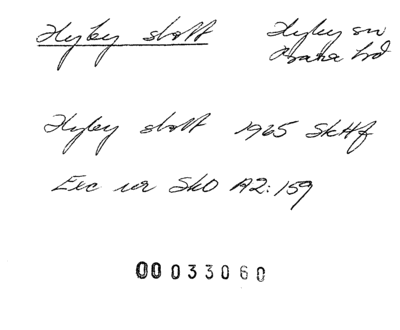 Hyby slott
Hyby sn
Bara hd
Hyby slott 1965 SkHf
Exc ur SkO A2:159
00033060